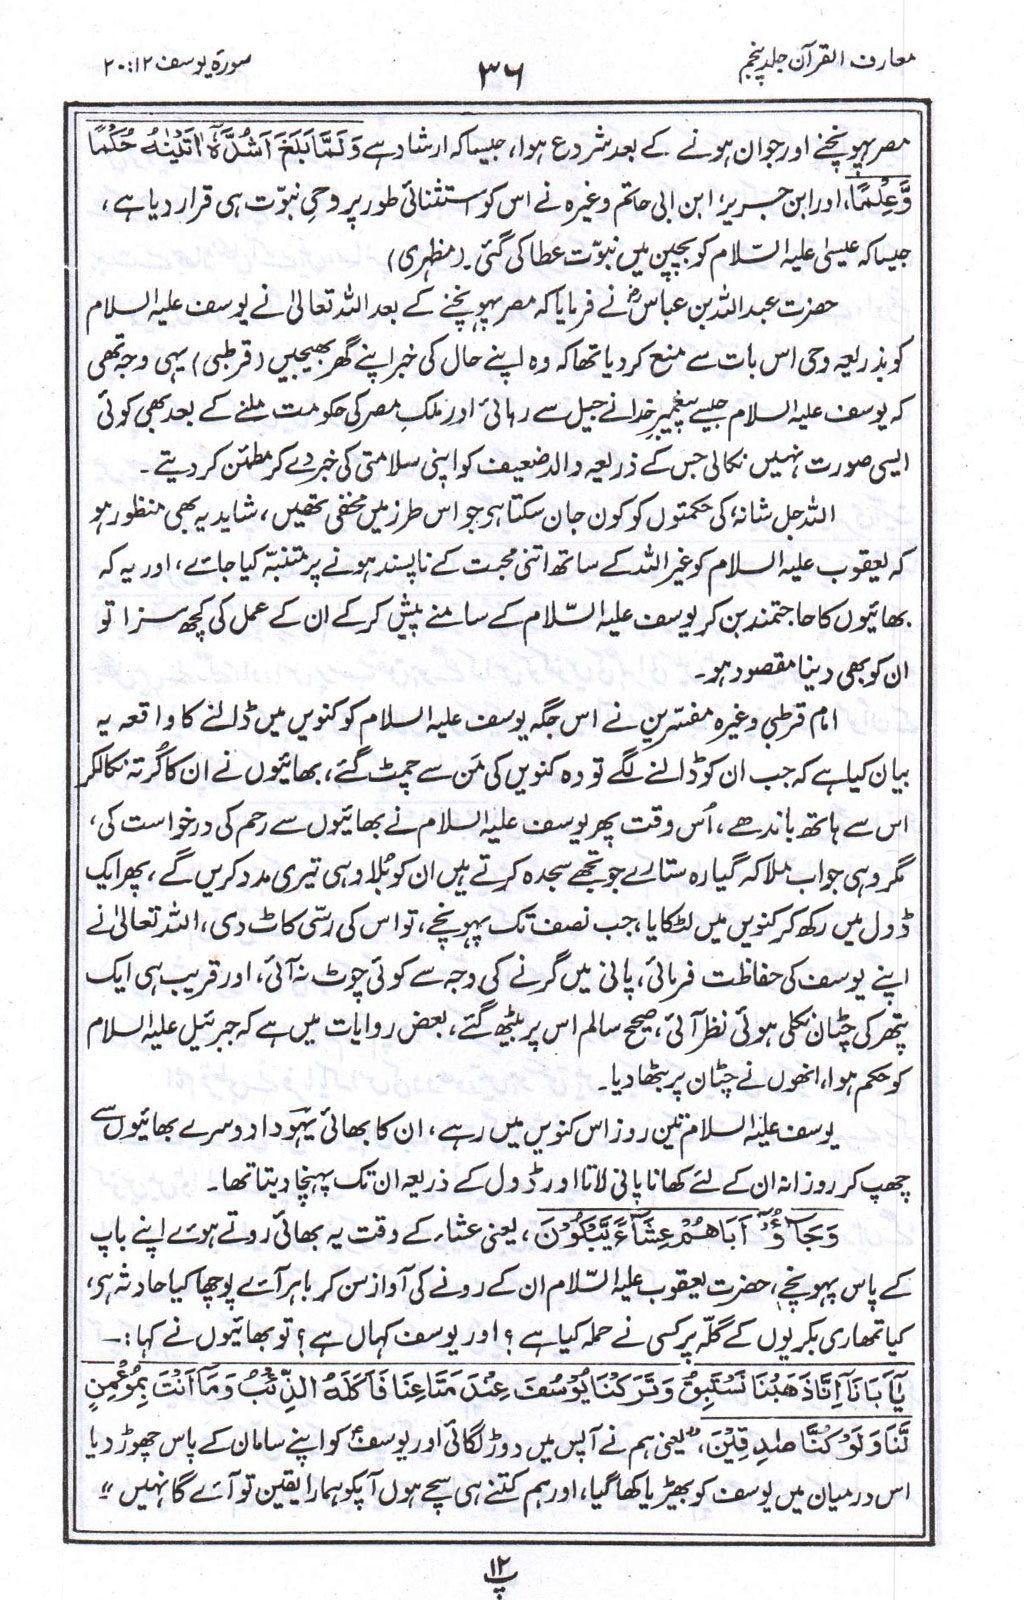 معارف القرآن جلد پنجم
۳۶
سورۃ یوسف ۱۲:۲۰
مصر پہونچنے اور جوان ہونے کے بعد شروع ہوا، جیسا کہ ارشاد ہے وَلَمَّا بَلَغَ اَشُدَّہٗٓ اٰتَیْنٰہُ حُکْمًا
وَّعِلْمًا، اور ابن جریر، ابن ابی حاتم وغیرہ نے اس کو استثنائی طور پر وحیِ نبوّت ہی قرار دیا ہے،
جیسا کہ عیسیٰ علیہ السّلام کو بچپن میں نبوّت عطا کی گئی۔ (مظہری)
حضرت عبداللہ بن عباسؓ نے فرمایا کہ مصر پہونچنے کے بعد اللہ تعالیٰ نے یوسف علیہ السلام
کو بذریعہ وحی اس بات سے منع کر دیا تھا کہ وہ اپنے حال کی خبر اپنے گھر بھیجیں (قرطبی) یہی وجہ تھی
کہ یوسف علیہ السلام جیسے پیغمبرِ خدا نے جیل سے رہائی اور ملکِ مصر کی حکومت ملنے کے بعد بھی کوئی
ایسی صورت نہیں نکالی جس کے ذریعہ والد ضعیف کو اپنی سلامتی کی خبر دے کر مطمئن کر دیتے۔
اللہ جل شانہٗ کی حکمتوں کو کون جان سکتا ہو جو اس طرز میں مخفی تھیں، شاید یہ بھی منظور ہو
کہ یعقوب علیہ السلام کو غیر اللہ کے ساتھ اتنی محبت کے ناپسند ہونے پر متنبّہ کیا جائے، اور یہ کہ
بھائیوں کا حاجتمند بن کر یوسف علیہ السّلام کے سامنے پیش کر کے ان کے عمل کی کچھ سزا تو
ان کو بھی دینا مقصود ہو۔
امام قرطبی وغیرہ مفسّرین نے اس جگہ یوسف علیہ السلام کو کنویں میں ڈالنے کا واقعہ یہ
بیان کیا ہے کہ جب ان کو ڈالنے لگے تو وہ کنویں کی مَن سے چمٹ گئے، بھائیوں نے ان کا کُرتہ نکالکر
اس سے ہاتھ باندھے، اُس وقت پھر یوسف علیہ السلام نے بھائیوں سے رحم کی درخواست کی،
مگر وہی جواب ملا کہ گیارہ ستارے جو تجھے سجدہ کرتے ہیں ان کو بُلا وہی تیری مدد کریں گے، پھر ایک
ڈول میں رکھ کر کنویں میں لٹکایا، جب نصف تک پہونچے، تو اس کی رسّی کاٹ دی، اللہ تعالیٰ نے
اپنے یوسف کی حفاظت فرمائی، پانی میں گرنے کی وجہ سے کوئی چوٹ نہ آئی، اور قریب ہی ایک
پتھر کی چٹان نکلی ہوئی نظر آئی، صحیح سالم اس پر بیٹھ گئے، بعض روایات میں ہے کہ جبرئیل علیہ السلام
کو حکم ہوا، انھوں نے چٹان پر بٹھا دیا۔
یوسف علیہ السلام تین روز اس کنویں میں رہے، ان کا بھائی یہودا دوسرے بھائیوں سے
چھپ کر روزانہ ان کے لئے کھانا پانی لاتا اور ڈول کے ذریعہ ان تک پہنچا دیتا تھا۔
وَجَآءُوْٓ اَبَاھُمْ عِشَآءً یَّبْکُوْنَ، یعنی عشاء کے وقت یہ بھائی روتے ہوئے اپنے باپ
کے پاس پہونچے، حضرت یعقوب علیہ السّلام ان کے رونے کی آواز سن کر باہر آئے پوچھا کیا حادثہ ہی،
کیا تمھاری بکریوں کے گلّہ پر کسی نے حملہ کیا ہے؟ اور یوسف کہاں ہے؟ تو بھائیوں نے کہا:۔
یٰٓاَبَانَآ اِنَّا ذَھَبْنَا نَسْتَبِقُ وَتَرَکْنَا یُوْسُفَ عِنْدَ مَتَاعِنَا فَاَکَلَہُ الذِّئْبُ وَمَآ اَنْتَ بِمُؤْمِنٍ
لَّنَا وَلَوْ کُنَّا صٰدِقِیْنَ، "یعنی ہم نے آپس میں دوڑ لگائی اور یوسفؑ کو اپنے سامان کے پاس چھوڑ دیا
اس درمیان میں یوسف کو بھیڑیا کھا گیا، اور ہم کتنے ہی سچے ہوں آپکو ہمارا یقین تو آئے گا نہیں"
پ۱۲